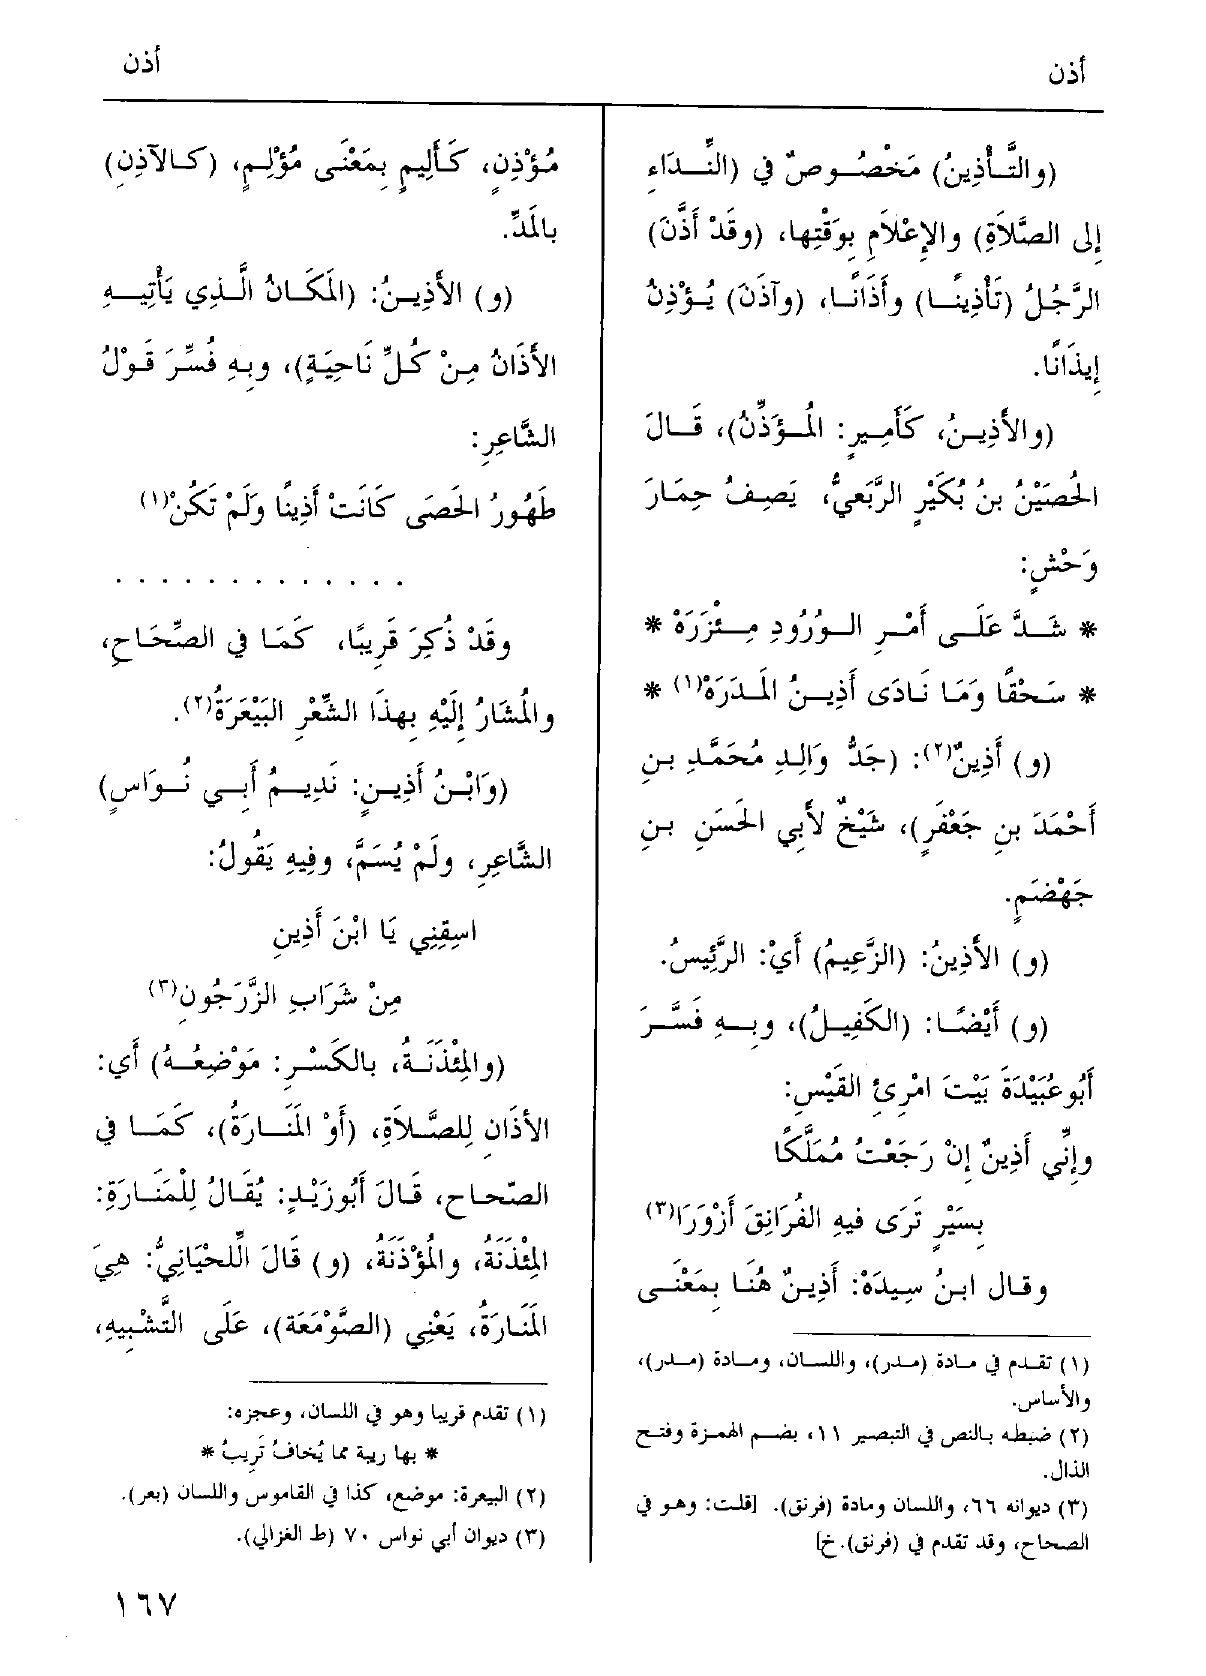 أذن
أذن
(والتَّأْذِينُ) مَخْصُوصٌ في (النِّدَاءِ
إلى الصَّلاَةِ) والإِعْلاَمِ بِوَقْتِها، (وقَدْ أَذَّنَ)
الرَّجُلُ (تَأْذِينًا) وأَذَانًا، (وآذَنَ) يُؤْذِنُ
إِيذَانًا.
(والأَذِينُ، كَأَمِيرٍ: المُؤَذِّنُ)، قَالَ
الحُصَيْنُ بنُ بُكَيْرٍ الرَّبَعِيُّ، يَصِفُ حِمَارَ
وَحْشٍ:
* شَدَّ عَلَى أَمْرِ الوُرُودِ مِئْزَرَهْ *
* سَحْقًا وَمَا نَادَى أَذِينُ المَدَرَهْ(١) *
(و) أُذَيْنٌ(٢): (جَدُّ وَالِدِ مُحَمَّدِ بنِ
أَحْمَدَ بنِ جَعْفَرٍ)، شَيْخٌ لأَبي الحَسَنِ بنِ
جَهْضَمٍ.
(و) الأَذِينُ: (الزَّعِيمُ) أَيْ: الرَّئِيسُ.
(و) أَيْضًا: (الكَفِيلُ)، وبِهِ فَسَّرَ
أَبُو عُبَيْدَةَ بَيْتَ امْرِئِ القَيْسِ:
وإِنِّي أَذِينٌ إِنْ رَجَعْتُ مُمَلَّكًا
بِسَيْرٍ تَرَى فيهِ الفُرَانِقَ أَزْوَرَا(٣)
وقال ابنُ سِيدَهْ: أَذِينٌ هُنَا بِمَعْنَى
(١) تقدم في مادة (مدر)، واللسان، ومادة (مدر)،
والأساس.
(٢) ضبطه بالنص في التبصير ١١، بضم الهمزة وفتح
الذال.
(٣) ديوانه ٦٦، واللسان ومادة (فرنق). [قلت: وهو في
الصحاح، وقد تقدم في (فرنق).خ]
مُؤْذِنٍ، كَأَلِيمٍ بِمَعْنَى مُؤْلِمٍ، (كالآذِنِ)
بالمَدِّ.
(و) الأَذِينُ: (المَكَانُ الَّذِي يَأْتِيهِ
الأَذَانُ مِنْ كُلِّ نَاحِيَةٍ)، وبِهِ فُسِّرَ قَوْلُ
الشَّاعِرِ:
طَهُورُ الحَصَى كَانَتْ أَذِينًا وَلَمْ تَكُنْ(١)
. . . . . . . . . . . . .
وقَدْ ذُكِرَ قَرِيبًا، كَمَا في الصِّحَاحِ،
والمُشَارُ إِلَيْهِ بِهذَا الشِّعْرِ البَيْعَرَةُ(٢).
(وَابْنُ أَذِينٍ: نَدِيمُ أَبِي نُوَاسٍ)
الشَّاعِرِ، ولَمْ يُسَمَّ، وفِيهِ يَقُولُ:
اسِقِنِي يَا ابْنَ أَذِينِ
مِنْ شَرَابِ الزَّرَجُونِ(٣)
(والمِئْذَنَةُ، بالكَسْرِ: مَوْضِعُهُ) أَي:
الأَذَانِ لِلصَّلاَةِ، (أَوْ المَنَارَةُ)، كَمَا في
الصّحاح، قَالَ أَبُو زَيْدٍ: يُقَالُ لِلْمَنَارَةِ:
المِئْذَنَةُ، والمُؤْذَنَةُ، (و) قَالَ اللِّحْيَانِيُّ: هِيَ
المَنَارَةُ، يَعْنِي (الصَّوْمَعَة)، عَلَى التَّشْبِيهِ،
(١) تقدم قريبا وهو في اللسان، وعجزه:
* بها ريبة مما يُخافُ تَرِيبُ *
(٢) البيعرة: موضع، كذا في القاموس واللسان (بعر).
(٣) ديوان أبي نواس ٧٠ (ط الغزالي).
١٦٧